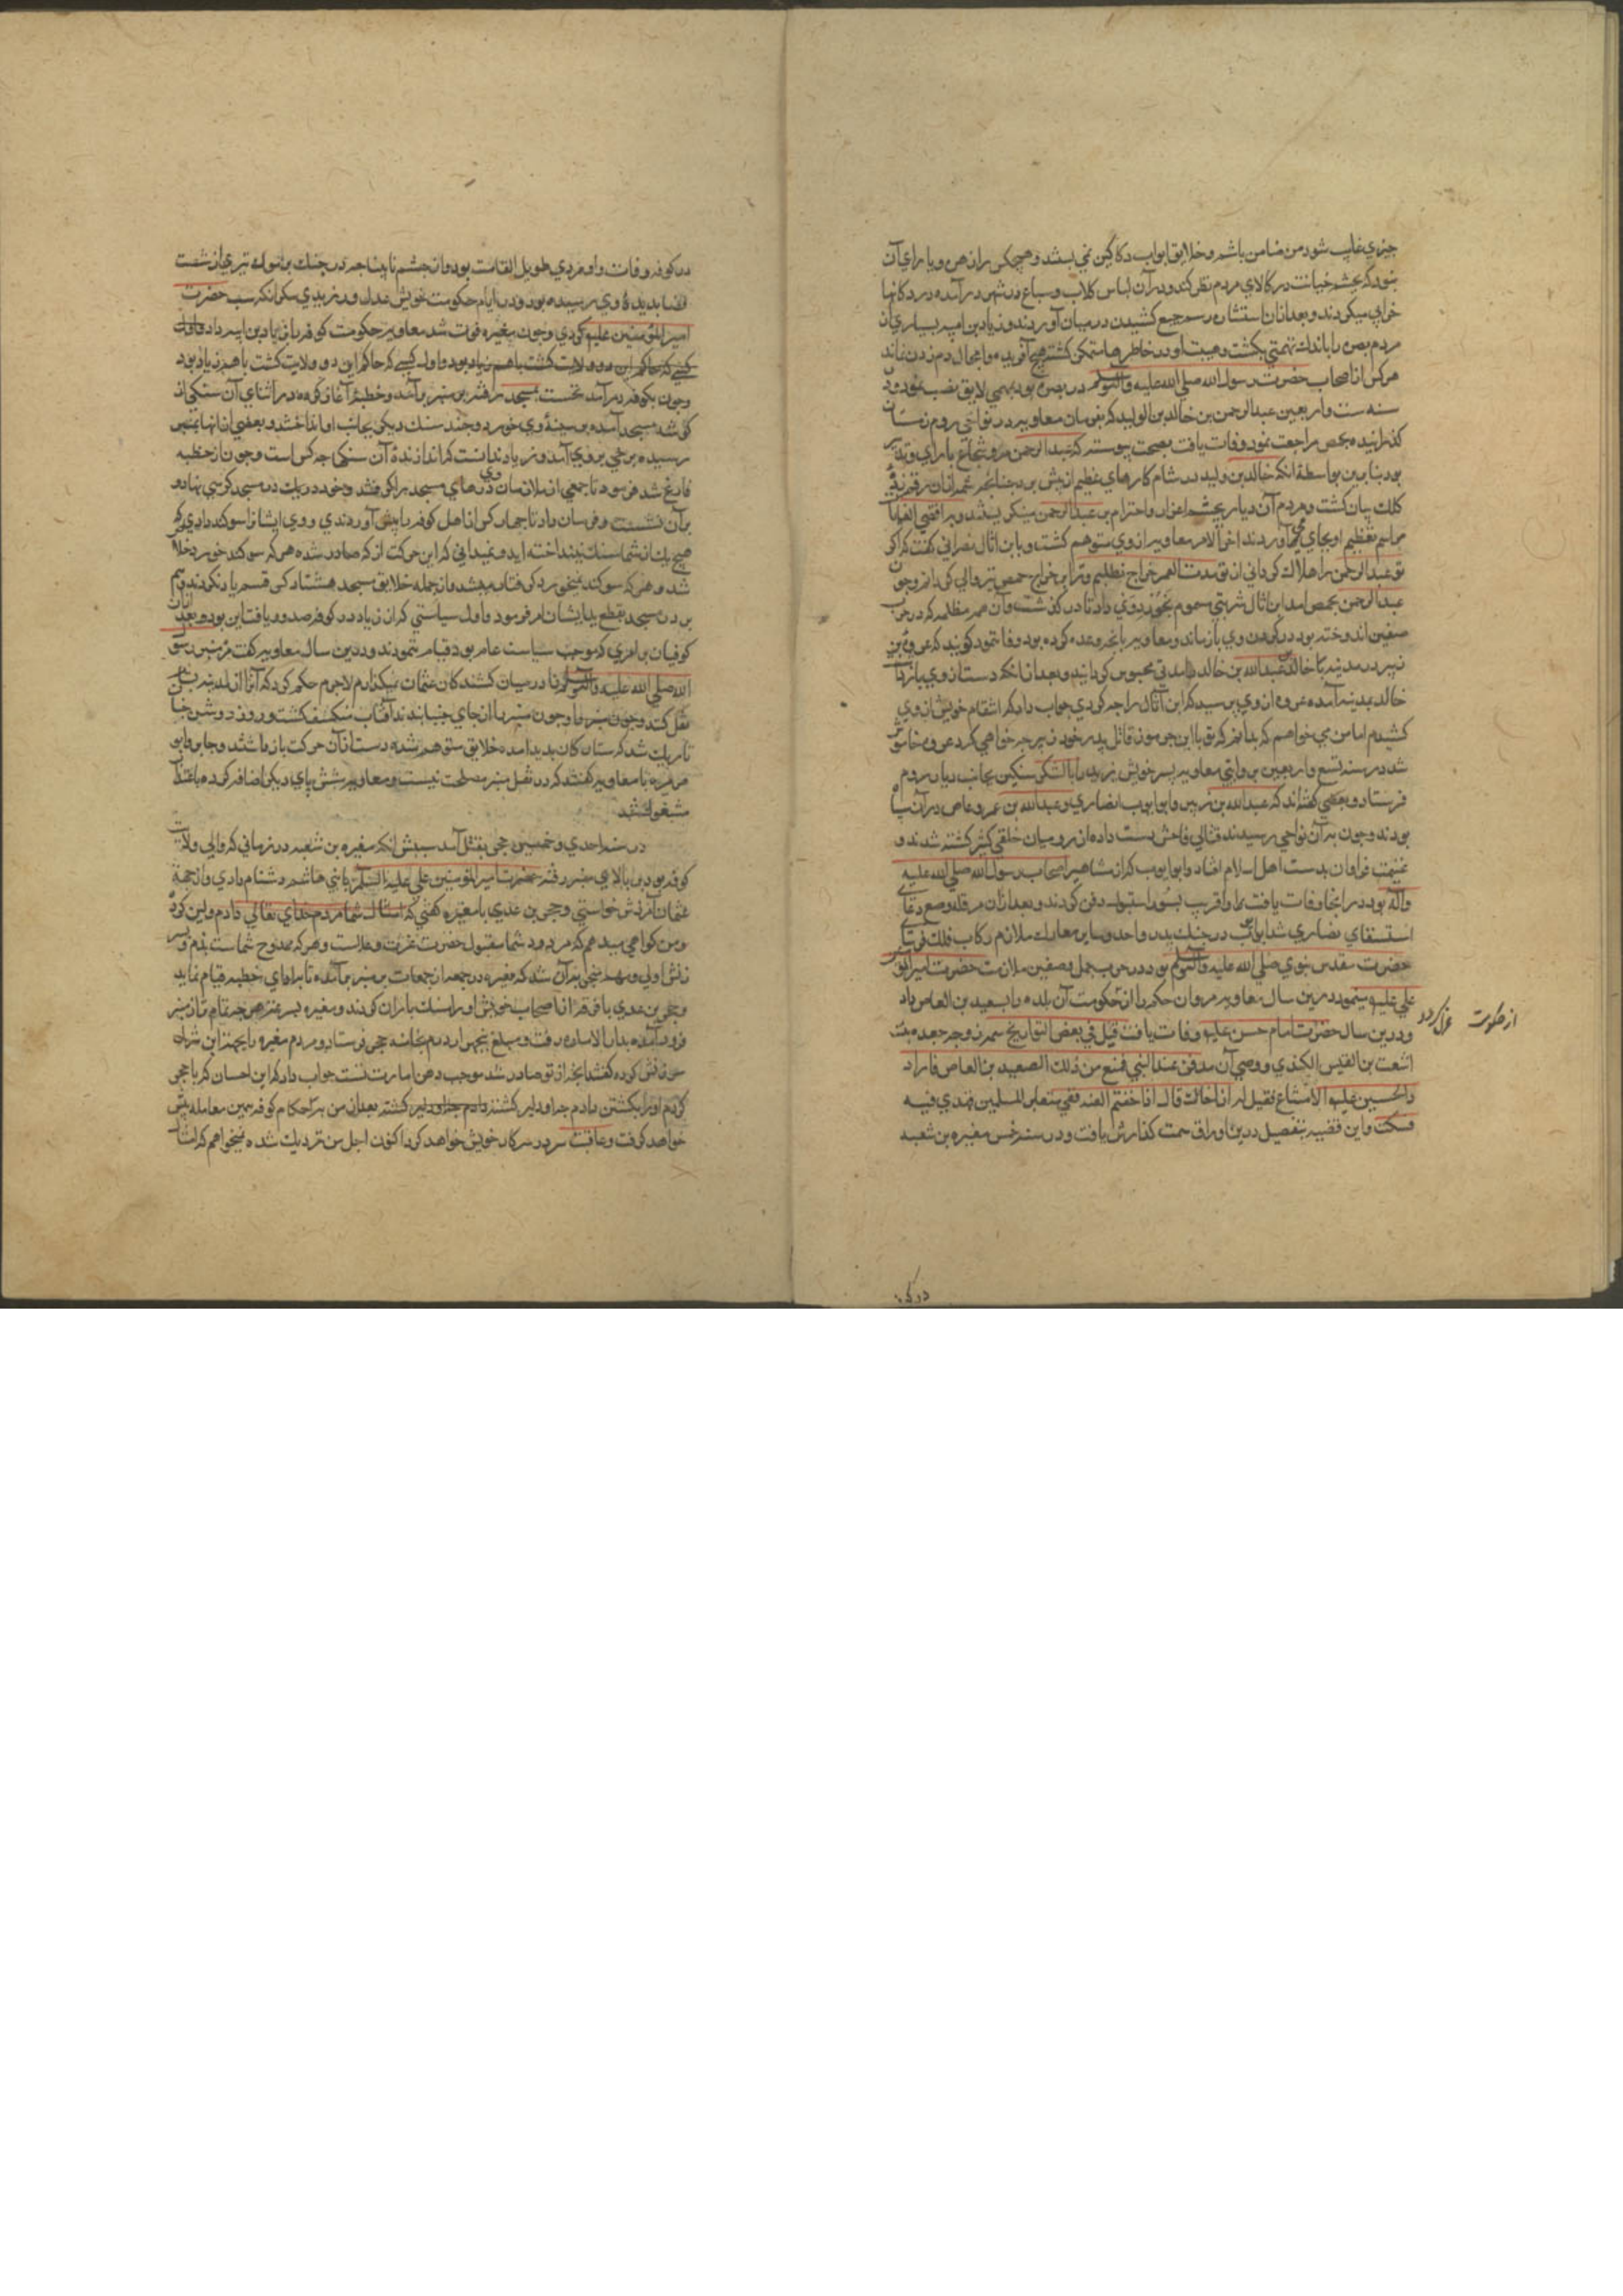 چیزی غایب شود من ضامن باشم و خلایق ابواب دکاکین نمی بستند و هیچکس را زهره و یارای آن
نبود که بچشم خیانت در کالای مردم نظر کند و در آن لباس کلاب و سباع در شهر درآمده در دکانها
خرابی میکردند و بعد از آن
مردم بصره را باندک تهمتی بکشت و هیبت او در خاطرها متمکن کشته هیچ آفریده را مجال دم زدن نماند
هر کس از اصحاب حضرت رسول الله صلی الله علیه وآله وسلم در بصره بود بمهمی لایق نصب نمود و در
سنه ست واربعین عبدالرحمن بن خالد بن الولید که بفرمان معاویه در نواحی روم زمستان
کذرانیده بحمص مراجعت نمود وفات یافت بصحت پیوسته که عبدالرحمن مرد شجاع با رای و تدبیر
بود بنابرین بواسطه آنکه خالد بن ولید در شام کارهای عظیم از پیش برد چنانچه شمه از آن رقم زده
کلک بیان کشت و مردم آن دیار بچشم اعزاز و احترام بر عبدالرحمن مینکریستند و
مراسم تعظیم او بجای می آوردند آخر الامر معاویه از وی متوهم کشت و با ابن اثال نصرانی کفت که اکر
تو عبدالرحمن را هلاک کردانی از تو مدت العمر خراج نطلبم و ترا بر خراج حمص نیز والی کردانم و چون
عبدالرحمن بحمص آمد ابن اثال شربتی مسموم بخورد وی داد تا درکذشت و آن همه مظلمه که در حرب
صفین اندوخته بود در کردن وی بازماند و معاویه بانچه وعده کرده بود وفا نمود کویند که عروة بن
زبیر در مدینه با خالد بن عبدالله بن خالد
خالد بمدینه آمده عروه از وی پرسید که ابن اثال را چه کردی جواب داد که انتقام خویش از وی
کشیدم اما من می خواهم که بدانم که تو با ابن جرموز قاتل پدر خود زبیر چه خواهی کرد عروه خاموش
شد در سنه تسع واربعین بروایتی معاویه پسر خویش یزید را با لشکری سنکین بجانب دیار روم
فرستاد و بعضی کفته اند که عبدالله بن زبیر و ابو ایوب انصاری و عبدالله بن عمرو عاص در آن سپاه
بودند و چون بدان نواحی رسیدند قتالی فاحش دست داده از رومیان خلقی کثیر کشته شدند و
غنیمت فراوان بدست اهل اسلام افتاد و ابو ایوب که از مشاهیر اصحاب رسول الله صلی الله علیه
وآله بود در آنجا وفات یافت و او را قریب بسور استنبول دفن کردند و بعد از آن مرقد او موضع دعای
استسقای نصاری شد ابو ایوب در جنک بدر و احد و سایر معارک ملازم رکاب فلک فرسای
حضرت مقدس نبوی صلی الله علیه وآله وسلم بود و در حرب جمل و صفین ملازمت حضرت امیرالمؤمنین
علی علیه مینمود درین سال معاویه مروان حکم را از حکومت آن بلده و ابسعید بن العاص داد
از حکومت عزل کرد
و درین سال حضرت امام حسن علیه وفات یافت قیل فی بعض التواریخ سم زوجه جعده بنت
اشعث بن القیس الکندی و وصی آن مدفن عند النبی فمنع من ذلک الصعید بن العاص فاراد
والحسین علیه الامتناع فقیل له
فسکت و این قضیه بتفصیل درین اوراق سمت کذارش یافت و در سنه خمسین مغیره بن شعبه
در کوفه
در کوفه وفات و او مردی طویل القامت بود و از چشم نابینا چه در جنک یرموک تیری از شست
قضا بدیده وی رسیده بود و در ایام حکومت خویش عدل ورزیدی مکر آنکه سب حضرت
امیرالمؤمنین علیه کردی و چون مغیره فوت شد معاویه حکومت کوفه را نیز بزیاد بن ابیه داد و اول
کسی که حاکم این دو ولایت کشت با هم زیاد بود
و چون بکوفه درآمد نخست بمسجد رفته بر منبر برآمد و خطبه آغاز کرده در اثنای آن سنکی از
کوشه مسجد آمده بر سینه وی خورد و چند سنک دیکر بجانب او انداختند و بعضی از آنها بمنبر
رسیده برخی بر وی آمد و زیاد ندانست که اندازنده آن سنکها چه کس است و چون از خطبه
فارغ شد فرمود تا جمعی از ملازمان وی درهای مسجد را کرفتند و خود در یک در مسجد کرسی نهاده
برآن نشست و فرمان داد تا چهار کس از اهل کوفه را پیش آوردندی و وی ایشانرا سوکند دادی که
هیچ یک از شما سنک نینداخته اید و نمیدانی که این حرکت از که صادر شده هر که سوکند خورد خلاص
شد و هر که سوکند نمیخورد کرفتار میشد و از جمله خلایق مسجد هشتاد کس قسم یاد نکردند و هم
بر در مسجد بقطع ید ایشان امر فرمود و اول سیاستی که از زیاد در کوفه صدور یافت این بود و بعد از آن
کوفیان بر امری که موجب سیاست عام بود قیام ننمودند و درین سال معاویه کفت که منبر رسول
الله صلی الله علیه وآله وسلم را در میان کشندکان عثمان نمیکذارم لاجرم حکم کرد که آنرا از مدینه بشام
نقل کنند و چون منبر را از جای جنبانیدند آفتاب منکسف کشت و روز روشن چنان
تاریک شد که ستارکان پدید آمده خلایق متوهم شده دست از آن حرکت باز داشتند و جابر و ابو
هریره با معاویه کفتند که در نقل منبر مصلحت نیست و معاویه شش پای دیکر اضافه کرده باعتذار
مشغول شد
در سنه احدی و خمسین حجر بقتل آمد سببش آنکه مغیره بن شعبه در زمانی که والی ولایت
کوفه بود بر بالای منبر رفته حضرت امیرالمؤمنین علی علیه السلام را با بنی هاشم دشنام دادی و از جهة
عثمان آمرزش خواستی و حجر بن عدی با مغیره کفتی که امثال شما مردم خدای تعالی
و من کواهی میدهم که مردود شما مقبول حضرت عزت و علاست و هر که ممدوح شماست بذم و سر
زنش اولی و مهم منجر بدان شد که مغیره در جمعه از جمعات بر منبر برآمده تا برادای خطبه قیام نماید
و حجر بن عدی باتفاق اصحاب خویش او را سنک باران کردند و مغیره بسرعت هرچه تمام تر از منبر
فرود آمده بدار الاماره رفت و مبلغ پنجهزار درم بخانه حجر فرستاد و مردم مغیره را بجهت این
سرزنش کرده کفتند آنچه از تو صادر شد موجب وهن امارت تست جواب داد که این احسان که با حجر
کردم او را بکشتن دادم
خواهد کرفت و عاقبت سر در سر کار خویش خواهد کرد اکنون اجل من نزدیک شده نمیخواهم که